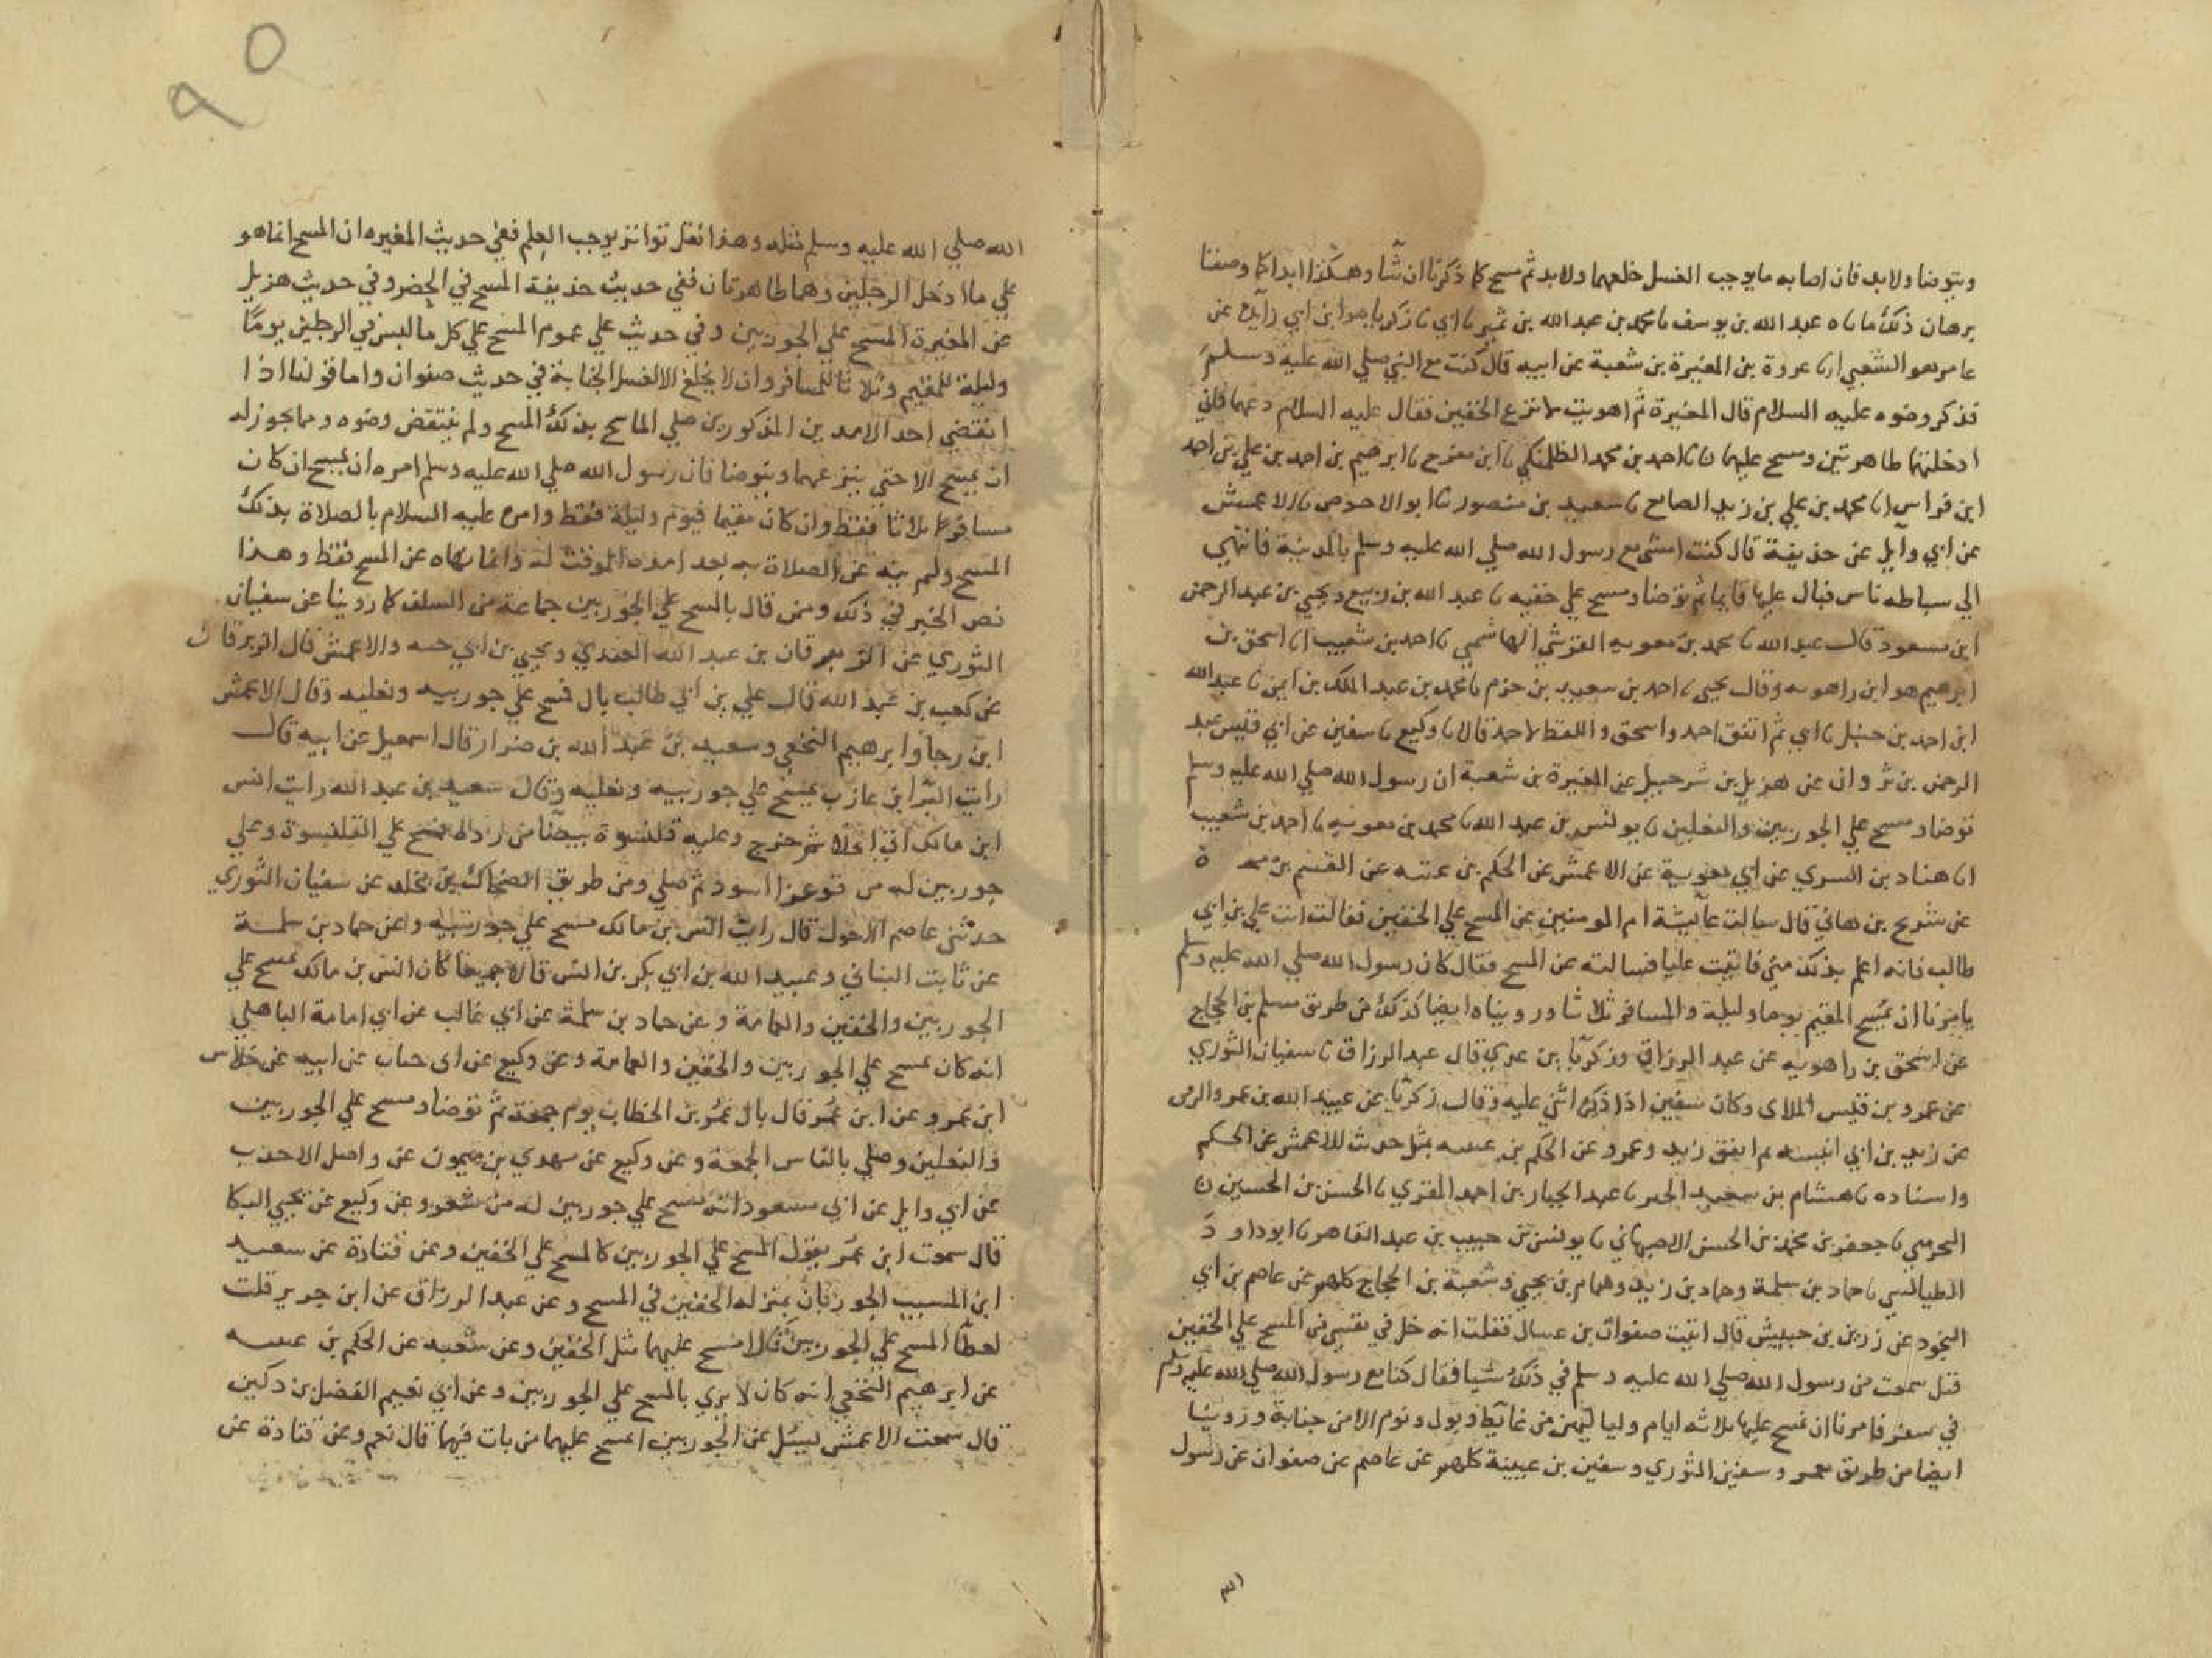 ويتوضا ولابد فان اصابه مايوجب الغسل خلعهما ولابد ثم مسح كما ذكرنا ان شا وهكذا ابدا كما وصفنا
برهان ذلك ما نا ه عبد الله بن يوسف نا محمد بن عبد الله بن نمير نا ابي نا زكريا هو ابن ابي زايدة عن
عامر هو الشعبي انا عروة بن المغيرة بن شعبة عن ابيه قال كنت مع النبي صلي الله عليه وسلم
فذكر وضوه عليه السلام قال المغيرة ثم اهويت لانزع الخفين فقال عليه السلام دعهما فاني
ادخلتهما طاهرتين ومسح عليهما نا احمد بن محمد الطلمنكي نا ابن مفرج نا ابرهيم بن احمد بن علي بن احمد
ابن فراس انا محمد بن علي بن زيد الصايغ نا سعيد بن منصور نا ابو الاحوص نا الاعمش
عن ابي وآيل عن حذيفة قال كنت امشي مع رسول الله صلي الله عليه وسلم بالمدينة فانتهي
الي سباطه ناس فبال عليها قايما ثم توضا ومسح علي خفيه نا عبد الله بن ربيع ويحيي بن عبد الرحمن
ابن مسعود قال عبد الله نا محمد بن معويه القرشي الهاشمي نا احمد بن شعيب انا اسحق بن
ابرهيم هو ابن راهويه وقال يحيي نا احمد بن سعيد بن حزم نا محمد بن عبد الملك بن ايمن نا عبد الله
ابن احمد بن حنبل نا ابي ثم اتفق احمد واسحق واللفظ لاحمد قالا نا وكيع نا سفين عن ابي قيس عبد
الرحمن بن ثروان عن هزيل بن شرحبيل عن المغيرة بن شعبة ان رسول الله صلي الله عليه وسلم
توضا ومسح علي الجوربين والنعلين نا يونس بن عبد الله نا محمد بن معويه نا احمد بن شعيب
انا هناد بن السري عن ابي معوية عن الاعمش عن الحكم بن عتيبه عن القسم بن
عن شريح بن هاني قال سالت عآيشة ام المومنين عن المسح علي الخفين فقالت ائت علي بن ابي
طالب فانه اعلم بذلك مني فاتيت عليا فسالته عن المسح فقال كان رسول الله صلي الله عليه وسلم
يامرنا ان يمسح المقيم يوما وليلة والمسافر ثلاثا وروينا ه ايضا كذلك من طريق مسلم بن الحجاج
عن اسحق بن راهويه عن عبد الرزاق وزكريا بن عدي قال عبد الرزاق نا سفيان الثوري
عن عمرو بن قيس الملاي وكان سفين اذا ذكره اثني عليه وقال زكريا عن عبيد الله بن عمرو الرقي
عن زيد بن ابي انيسه ثم اتفق زيد وعمرو عن الحكم بن عتيبه بمثل حديث الاعمش عن الحكم
واسناده نا هشام بن سعيد الخير نا عبد الجبار بن احمد المقري نا الحسن بن الحسين
النجيرمي نا جعفر بن محمد بن الحسن الاصبهاني نا يونس بن حبيب بن عبد القاهر نا ابو داود
الطيالسي نا حماد بن سلمة وحماد بن زيد وهمام بن يحيي وشعبة بن الحجاج كلهم عن عاصم بن ابي
النجود عن زر بن حبيش قال اتيت صفوان بن عسال فقلت انه حك في نفسي من المسح علي الخفين
هل سمعت من رسول الله صلي الله عليه وسلم في ذلك شيا فقال كنا مع رسول الله صلي الله عليه وسلم
في سفر فامرنا ان نمسح عليها ثلاثه ايام ولياليهن من غايط وبول ونوم الا من جنابة وروينا
ايضا من طريق معمر وسفين الثوري وسفين بن عيينة كلهم عن عاصم عن صفوان عن رسول
الله صلي الله عليه وسلم مثله وهذا نقل تواتر يوجب العلم ففي حديث المغيره ان المسح انما هو
علي ما ادخل الرجلين وهما طاهرتان ففي حديث حذيفة المسح في الحضر وفي حديث هزيل
عن المغيرة المسح علي الجوربين وفي حديث علي عموم المسح علي كل ما لبس في الرجلين يوما
وليلة للمقيم وثلاثا للمسافر وان لا يخلع الا لغسل الجنابة في حديث صفوان واما قولنا اذا
انقضي احد الامدين المذكورين صلي الماسح بذلك المسح ولم ينتقض وضوه وما يجوز له
ان يمسح الا حتي ينزعهما ويتوضا فان رسول الله صلي الله عليه وسلم امره ان يمسح ان كان
مسافرا ثلاثا فقط وان كان مقيما فيوم وليلة فقط وامره عليه السلام بالصلاة بذلك
المسح ولم ينه عن الصلاة به بعد امده الموقت له وانما نهاه عن المسح فقط وهذا
نص الخبر في ذلك وممن قال بالمسح علي الجوربين جماعة من السلف كما روينا عن سفيان
الثوري عن الزبرقان بن عبد الله العبدي ويحيي بن ابي حيه والاعمش قال الزبرقان
عن كعب بن عبد الله قال علي بن ابي طالب بال فمسح علي جوربيه ونعليه وقال الاعمش
ابن رجا وابرهيم النخعي وسعيد بن عبد الله بن ضرار قال اسمعيل عن ابيه قال
رايت البرا بن عازب يمسح علي جوربيه ونعليه وقال سعيد بن عبد الله رايت انس
ابن مالك اتي الخلا ثم خرج وعليه قلنسوة بيضآ فمسح علي القلنسوة وعلي
جوربين له من اسود ثم صلي ومن طريق الضحاك بن مخلد عن سفيان الثوري
حدثني عاصم الاحول قال رايت انس بن مالك مسح علي جوربيه وعن حماد بن سلمة
عن ثابت البناني وعبيد الله بن ابي بكر بن انس قالا جميعا كان انس بن مالك يمسح علي
الجوربين والخفين والعمامة وعن حماد بن سلمة عن ابي غالب عن ابي امامة الباهلي
انه كان يمسح علي الجوربين والخفين والعمامة وعن وكيع عن ابي جناب عن ابيه عن خلاس
ابن عمرو عن ابن عمر قال بال عمر بن الخطاب يوم جمعة ثم توضا ومسح علي الجوربين
والنعلين وصلي بالناس الجمعة وعن وكيع عن مهدي بن ميمون عن واصل الاحدب
عن ابي وايل عن ابي مسعود انه مسح علي جوربين له من شعر وعن وكيع عن يحيي البكا
قال سمعت ابن عمر يقول المسح علي الجوربين كالمسح علي الخفين وعن قتادة عن سعيد
ابن المسيب الجوربان بمنزله الخفين في المسح وعن عبد الرزاق عن ابن جريج قلت
لعطآ المسح علي الجوربين قال امسح عليهما مثل الخفين وعن شعبه عن الحكم بن عتيبه
عن ابرهيم النخعي انه كان لا يري بالمسح علي الجوربين وعن ابي نعيم الفضل بن دكين
قال سمعت الاعمش يسئل عن الجوربين ايمسح عليهما من بات فيهما قال نعم وعن قتادة عن